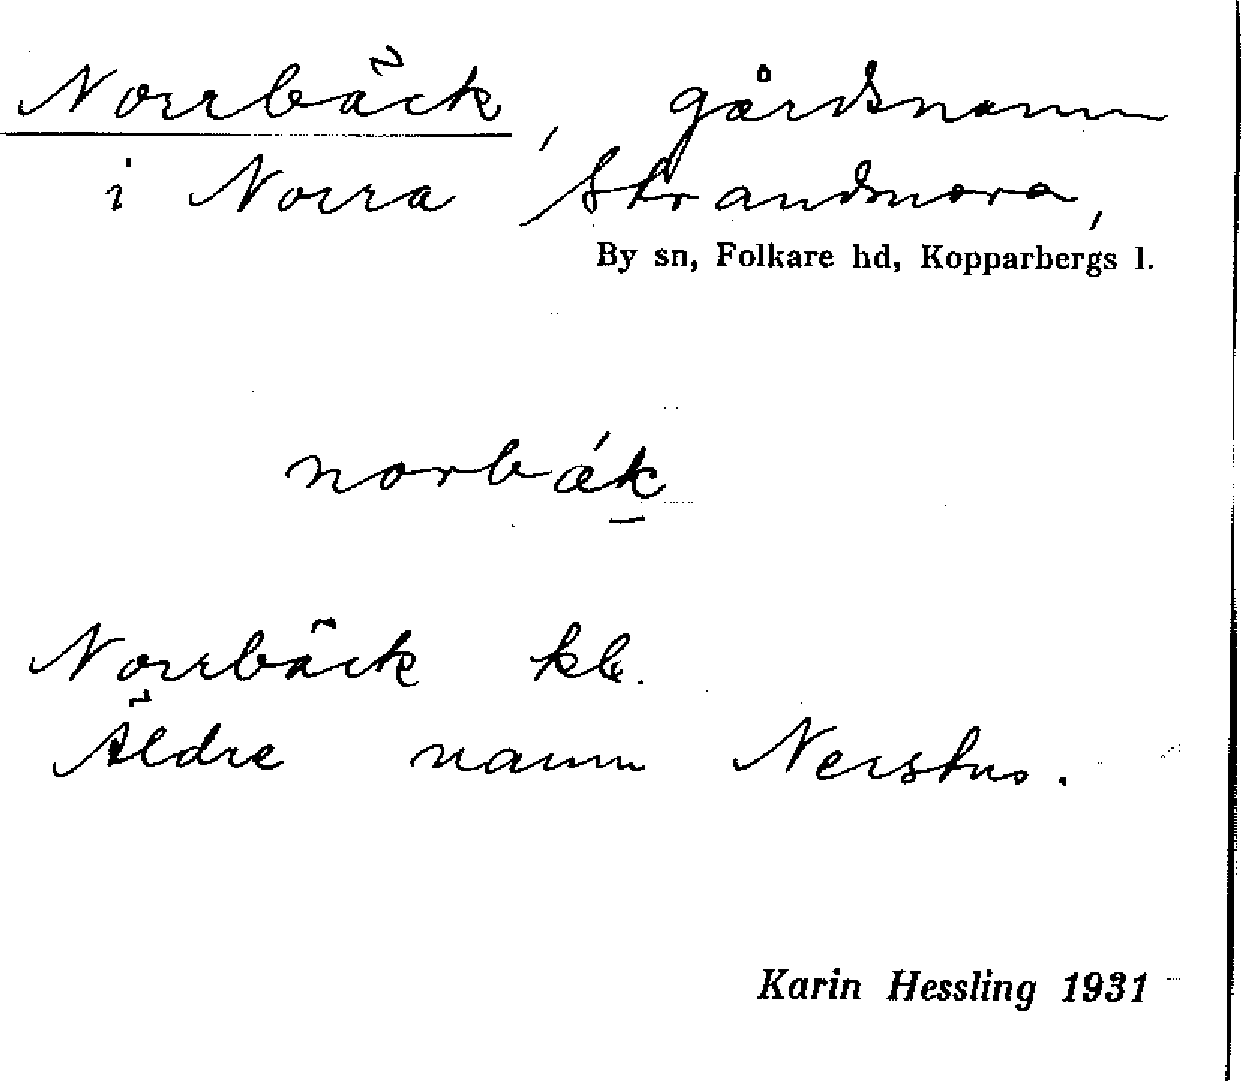 Norrbäck, gårdsnamn
i Norra Strandmora,
By sn, Folkare hd, Kopparbergs l.
norbák
Norrbäck kb.
Äldre namn Nerstus.
Karin Hessling 1931